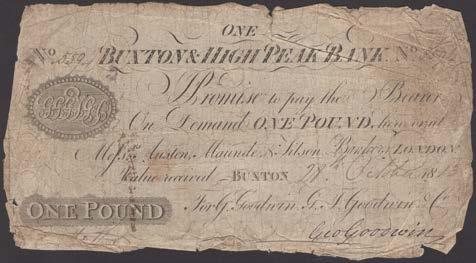 ONE
No BUXTON & HIGH PEAK BANK No
I Promise to pay the Bearer
On Demand ONE POUND, here or at
Messrs Austen, Maunde & Tilson, Bankers, LONDON
Value received BUXTON October 1813
ONE POUND
For G. Goodwin, G. J. Goodwin & Co
Geo Goodwin